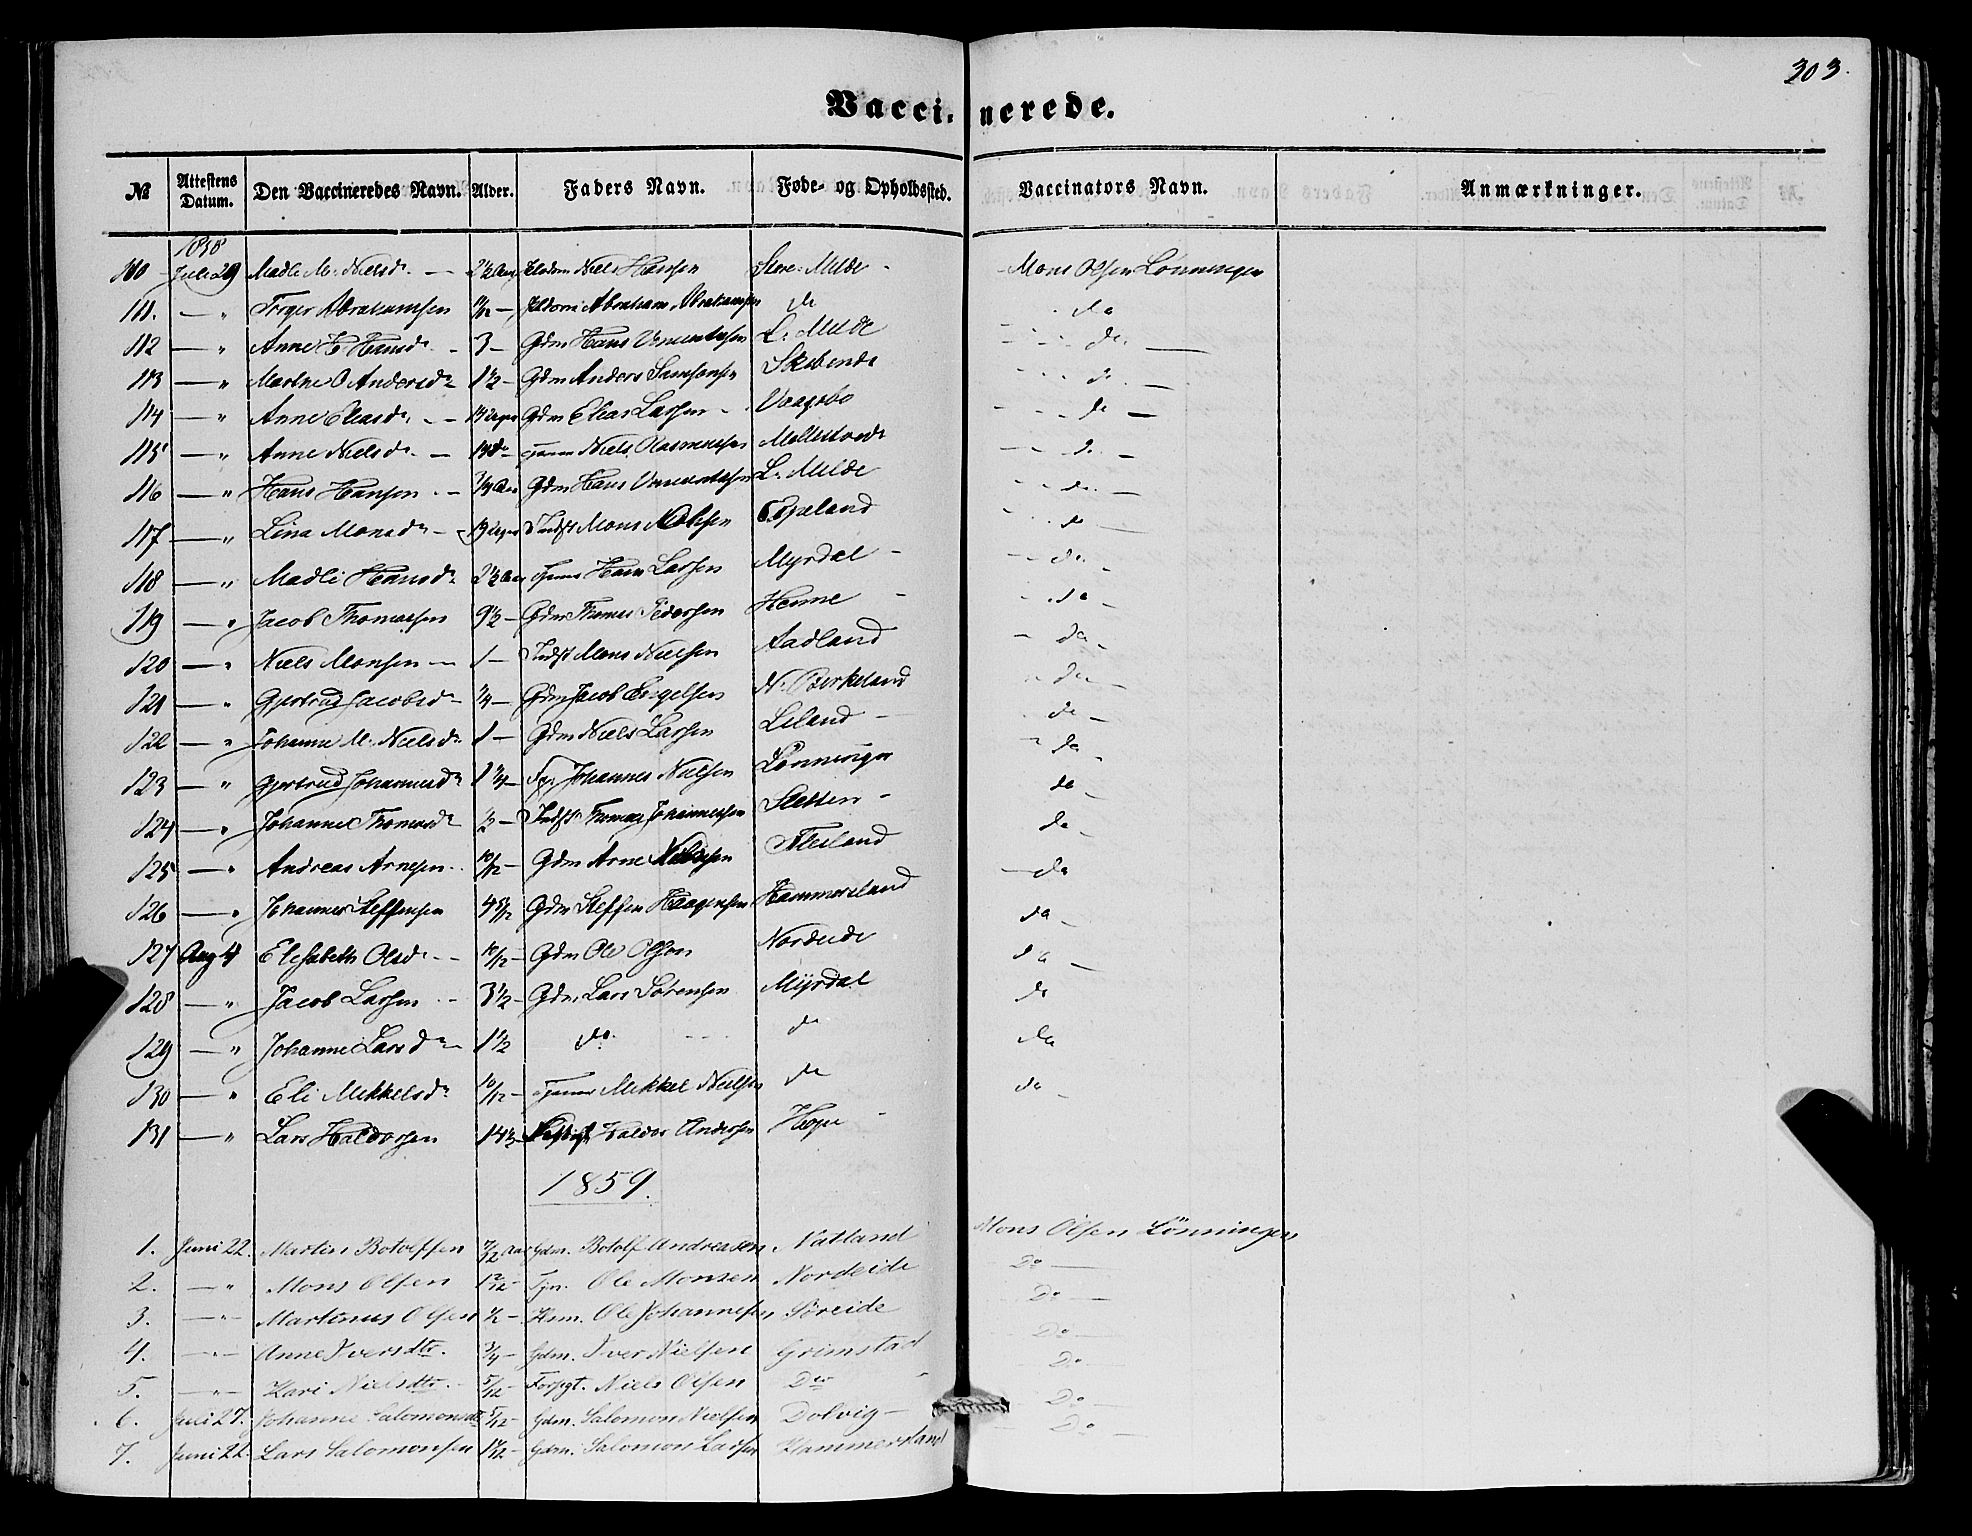 303.
Vaccinerede.
№ Attestens Datum. Den Vaccineredes Navn. Alder. Faders Navn. Føde- og Opholdssted. Vaccinators Navn. Anmærkninger.
1858
110 Juli 29 Madli M. Nielsdr 2½ Aar Niels Hansen Store Milde Mons Olsen Lønningen
111. — " Torger Abrahamsen — Abraham Abrahamsen do do
112 — " Anne H Hansd. 3 — Gdm Hans L. Milde do
113 — " Marthe O Andersdr 1½ — Gdm Anders Samsonsen do
114 — " Anne Eliasdr Gdm Elias Larsen Vaagsbø do
115 — " Anne Nielsdr Niels Rasmussen do
116 — " Hans Hansen ¾ Aar Gdm Hans L. Milde do
117 — " Lina Monsdr Indst Mons Espeland do
118 — " Madli Hansdr 2½ Aar Hans Larsen Myrdal do
119 — " Jacob Thomassen 9½ — Gdm Thomas Pedersen Henne do
120 — " Niels Monsen 1 — Indst Mons Nielsen Aadland do
121 — " Gjertrud Jacobsd ¾ — Gdm Jacob Engelsen N. Birkeland do
122 — " Johanne M. Nielsdr 1 — Gdm Niels Larsen Liland do
123 — " Gjertrud Johannesdr 1¾ — Johannes Nielsen Lønningen do
124 — " Johanne Thomasdr ½ — Indst Thomas Johannessen Sletten do
125 — " Andreas Arnesen 10/12 — Gdm Arne Flesland do
126 — " Johannes Steffensen Gdm Steffen Haagensen Hammersland do
127 Aug 4 Elisabeth Olsd. 10/12 — Gdm Ole Olson Nordeide do
128 — " Jacob Larsen 3½ — Gdm Lars Sørensen Myrdal do
129 — " Johanne Larsdr 1½ do do do
130 — " Eli Mikkelsdr 10/12 — Mikkel Nielsen do do
131 — " Lars Haldorsen 14½ Haldor Andersen Hope
1859.
1. Juni 22. Martin Botolfsen 7/12 Aar Gdm. Botolf Andreasen Natland Mons Olsen Lønningen
2. — " Mons Olsen Ole Monsen Nordeide Do
3. — " Martinus Olsen ½ — Hsm. Ole Johannesen Søreide Do
4. — " Anne Iversdtr. ¾ — Gdm. Iver Nielsen Grimstad Do
5. — " Kari Nielsdtr. 5/12 — Forpgt. Niels Olsen Do Do
6. Juli 27. Johanne Salomonsdtr 5/12 — Gdm. Salomon Nielsen Dolvig Do
7. Juni 22. Lars Salomonsen Gdm. Salomon Larsen Hammersland Do